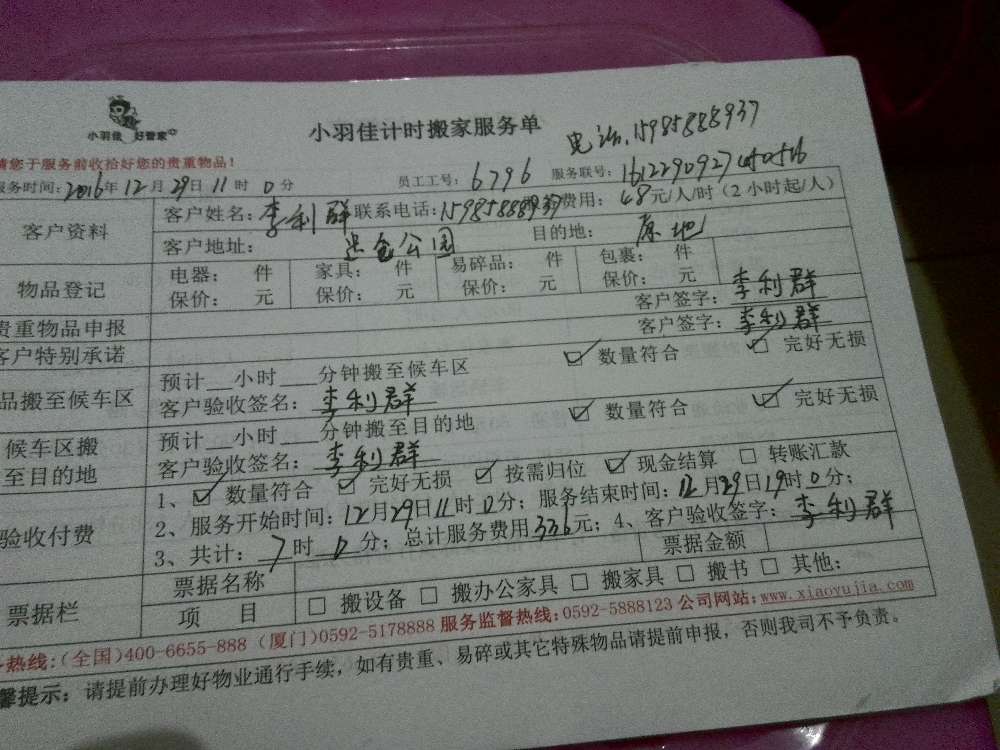 小羽佳 好管家
小羽佳计时搬家服务单
电话:15985888937
请您于服务前收拾好您的贵重物品!
服务时间:2016年12月29日11时0分 员工工号:6796 服务联号:1612290927
客户资料 客户姓名:李利群 联系电话:15985888937 费用:48元/人/时(2小时起/人)
客户地址: 公园 目的地:原地
物品登记 电器: 件 家具: 件 易碎品: 件 包裹: 件
保价: 元 保价: 元 保价: 元 保价: 元
贵重物品申报 客户签字:李利群
客户特别承诺 客户签字:李利群
品搬至候车区 预计__小时___分钟搬至候车区 ☑ 数量符合 ☑ 完好无损
客户验收签名:李利群
候车区搬至目的地 预计__小时___分钟搬至目的地 ☑ 数量符合 ☑ 完好无损
客户验收签名:李利群
验收付费 1、☑ 数量符合 ☑ 完好无损 ☑ 按需归位 ☑ 现金结算 □ 转账汇款
2、服务开始时间:12月29日11时0分;服务结束时间:12月29日19时0分;
3、共计:7时0分;总计服务费用336元;4、客户验收签字:李利群
票据栏 票据名称 票据金额
项 目 □ 搬设备 □ 搬办公家具 □ 搬家具 □ 搬书 □ 其他:
热线:(全国)400-6655-888 (厦门)0592-5178888 服务监督热线:0592-5888123 公司网站:www.xiaoyujia.com
馨提示:请提前办理好物业通行手续,如有贵重、易碎或其它特殊物品请提前申报,否则我司不予负责。